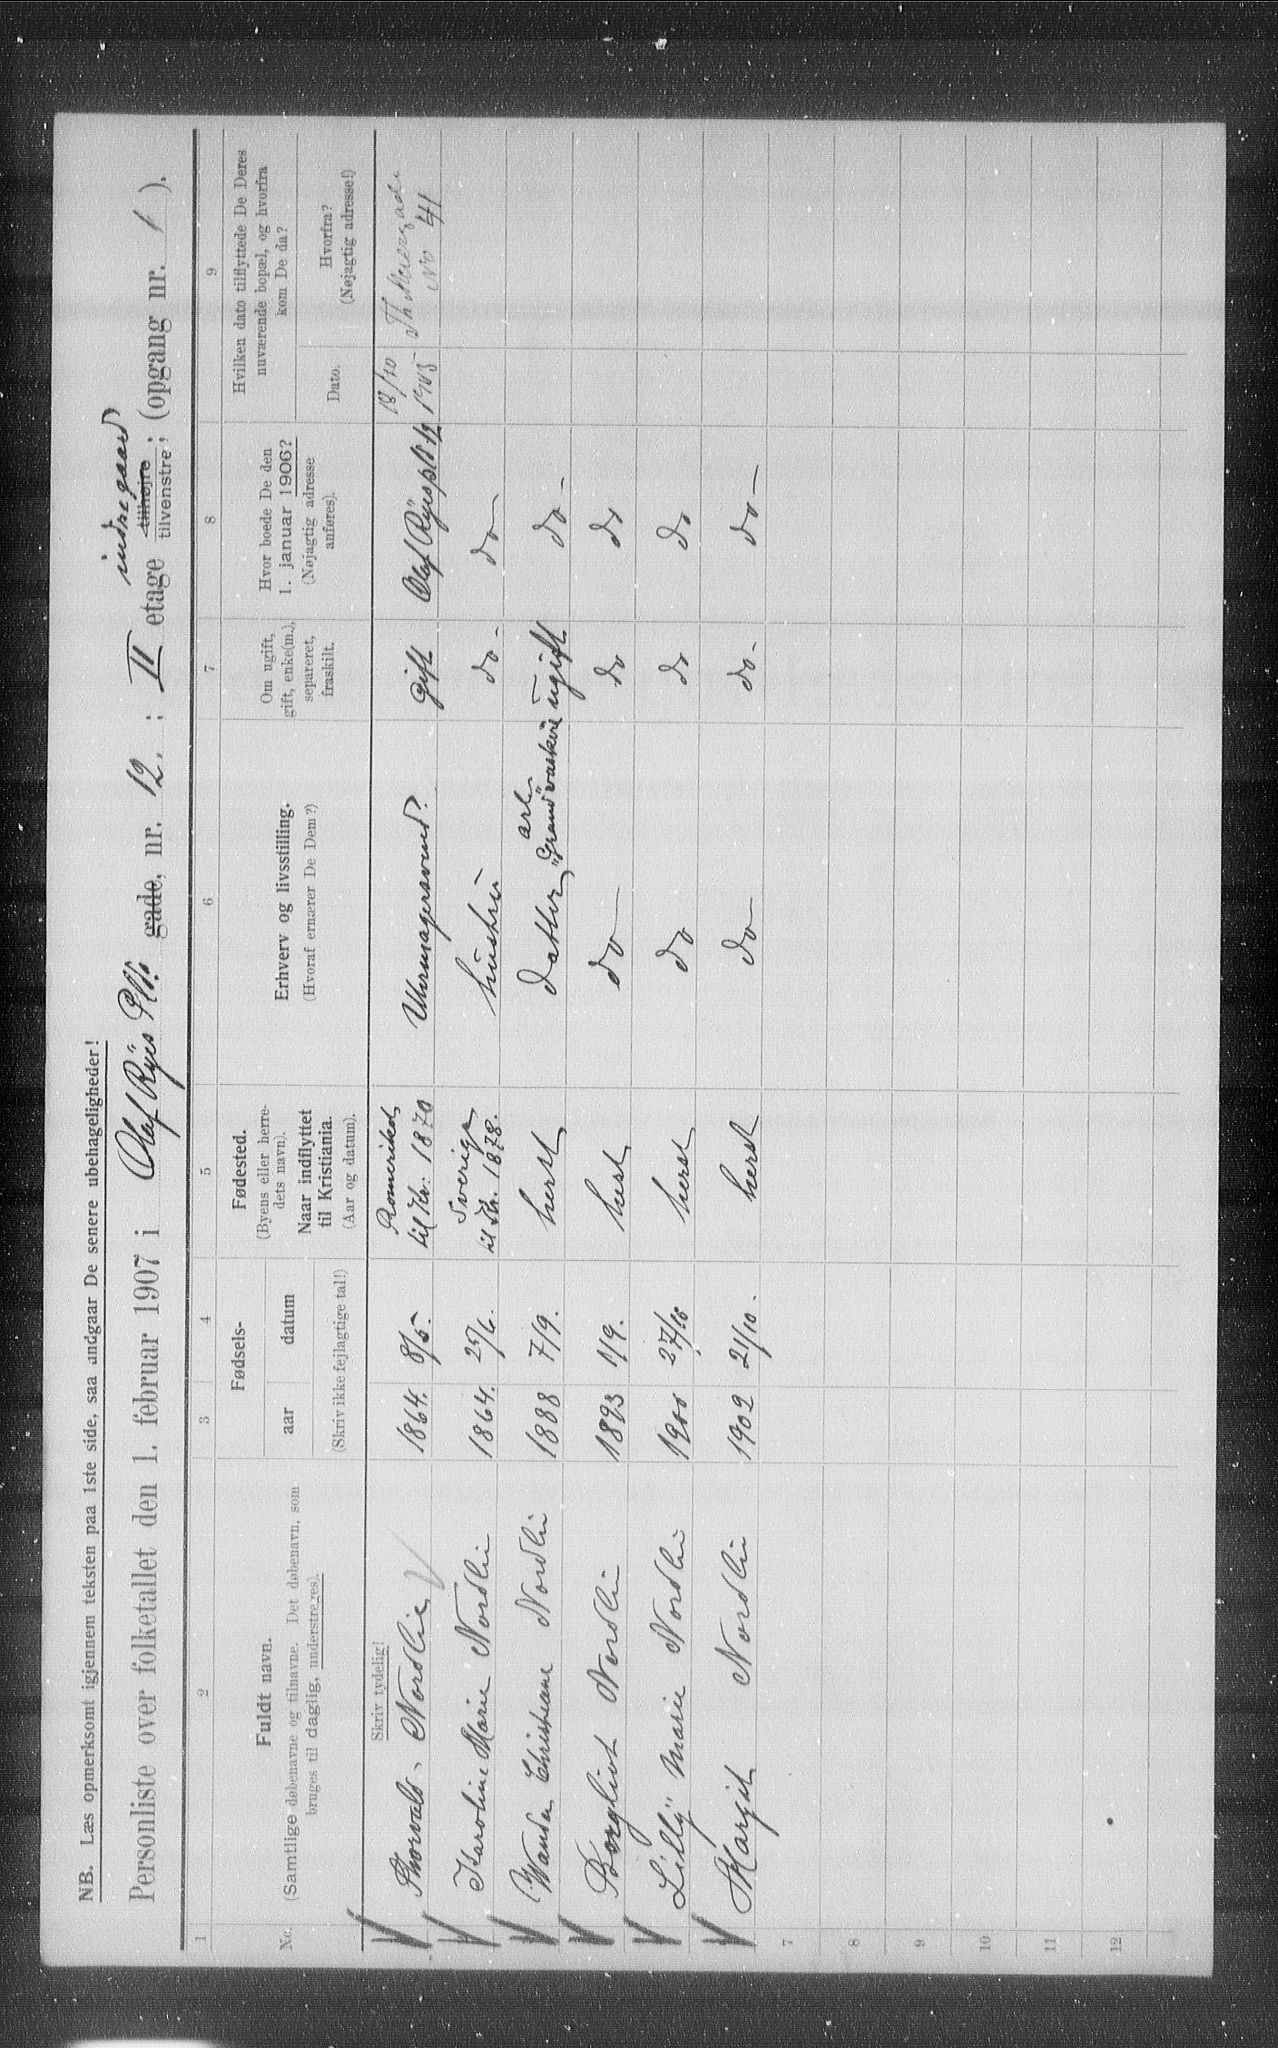 NB. Læs opmerksomt igjennem teksten paa 1ste side, saa undgaar De senere ubehageligheder!
indregaard
Personliste over folketallet den 1. februar 1907 i Olaf Ryes Pl. gade, nr. 12. ; II etage tilhøjre ; tilvenstre ; (opgang nr. 1 ).
1 2 3 4 5 6 7 8 9
No.
Fuldt navn.
(Samtlige døbenavne og tilnavne. Det døbenavn, som
bruges til daglig, understreges).
Fødsels-
aar datum
(Skriv ikke fejlagtige tal!)
Fødested.
(Byens eller herre-
dets navn).
Naar indflyttet
til Kristiania.
(Aar og datum).
Erhverv og livsstilling.
(Hvoraf ernærer De Dem?)
Om ugift,
gift, enke(m.),
separeret,
fraskilt.
Hvor boede De den
1. januar 1906?
(Nøjagtig adresse
anføres).
Hvilken dato tilflyttede De Deres
nuværende bopæl, og hvorfra
kom De da?
Dato.
Hvorfra?
(Nøjagtig adresse!)
Skriv tydelig!
Thorvald Nordlie 1864. 8/5. Romerike til Kr: 1870 Uhrmagersvend gift Olaf Ryes pl. 12 18/10 1905 Th Meiersgade No 41
Karoline Marie Nordlie 1864. 25/6. Sverige til Kr. 1878. hustru do - do -
Wanda Christiane Nordli 1888 7/9. herst datter, arb. "Grand" vaskeri ugift do -
Borgliot Nordli 1893 1/9. herst do - do do
Lilly Marie Nordli 1900 27/10 herst do do do
Margit Nordli 1902 21/10. herst do - do - do -
7
8
9
10
11
12